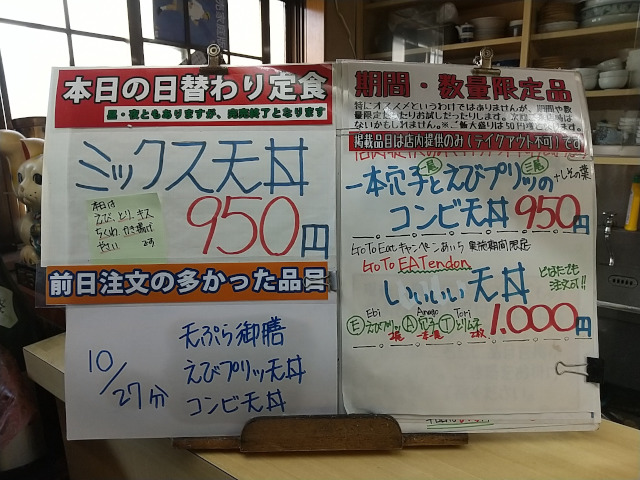 本日の日替わり定食
昼・夜ともありますが、肉肉終了となります
ミックス天丼
本日は
えび、とり、キス
ちくわ、かき揚げ
やさい です
950円
前日注文の多かった品目
10/27分
天ぷら御膳
えびプリッ天丼
コンビ天丼
期間・数量限定品
特にオススメというわけではありませんが、期間や数
量限定
ないかもしれません。※ご飯大盛りは50円増
掲載品目は店内提供のみ(テイクアウト不可)です
一尾 三尾
一本穴子とえびプリッの +しその葉
コンビ天丼 950円
Go To Eatキャンペーンあいち 実施期間限定
Go To EATendon
いいいい天丼 どなたでも
注文可!!
Ebi Anago Tori
E えびプリッ A 穴子 T とりムネ
2尾 一本 2枚
1.000円